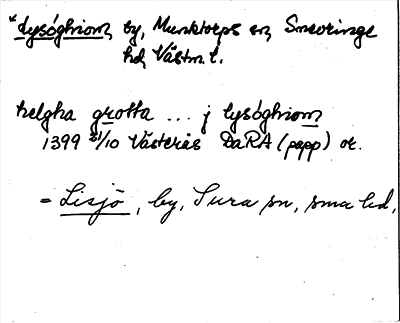 *Lysóghiom, by, Munktorps sn, Snevringe
hd, Västm. l.
helgha grotta ... j lysóghiom
1399 31/10 Västerås DaRA (papp) or.
= Lisjö, by, Sura sn, sma hd,